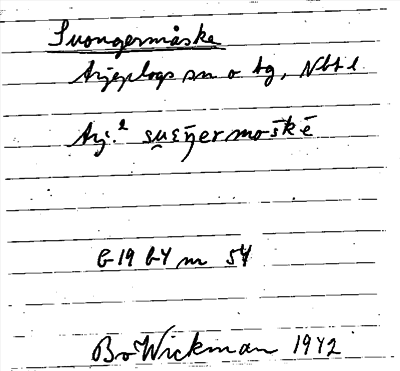 Suongermåske
Arjeplogs sn o tg, Nbtl
Arj.² su̯εŋ̄ermo-s̄kē
G 19 64 nr 54
Bo Wickman 1942